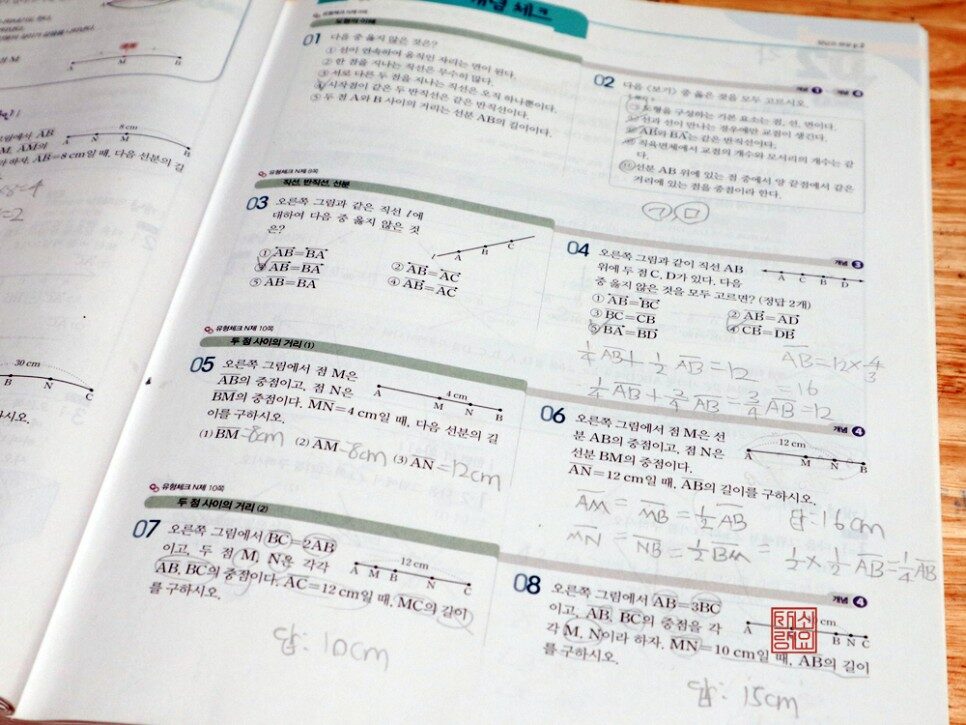 개념 체크
도형의 이해
01 다음 중 옳지 않은 것은?
① 선이 연속하여 움직인 자리는 면이 된다.
② 한 점을 지나는 직선은 무수히 많다.
③ 서로 다른 두 점을 지나는 직선은 오직 하나뿐이다.
④ 시작점이 같은 두 반직선은 같은 반직선이다.
⑤ 두 점 A와 B 사이의 거리는 선분 AB의 길이이다.
02 다음 〈보기〉 중 옳은 것을 모두 고르시오.
도형을 구성하는 기본 요소는 점, 선, 면이다.
선과 선이 만나는 경우에만 교점이 생긴다.
AB와 BA는 같은 반직선이다.
직육면체에서 교점의 개수와 모서리의 개수는 같
다.
선분 AB 위에 있는 점 중에서 양 끝점에서 같은
거리에 있는 점을 중점이라 한다.
ㄱ, ㅁ
유형체크 N제 9쪽
직선, 반직선, 선분
03 오른쪽 그림과 같은 직선 l에
대하여 다음 중 옳지 않은 것
은?
l A B C
① AB=BA
② AB=AC
③ AB=BA
④ AB=AC
⑤ AB=BA
개념 3
04 오른쪽 그림과 같이 직선 AB
위에 두 점 C, D가 있다. 다음
중 옳지 않은 것을 모두 고르면? (정답 2개)
A C B D
① AB=BC
② AB=AD
③ BC=CB
④ CB=DB
⑤ BA=BD
유형체크 N제 10쪽
두 점 사이의 거리 (1)
05 오른쪽 그림에서 점 M은
AB의 중점이고, 점 N은
BM의 중점이다. MN=4 cm일 때, 다음 선분의 길
이를 구하시오.
4 cm
A M N B
(1) BM =8cm (2) AM =8cm (3) AN =12cm
1/4 AB + 1/2 AB = 12
AB = 12 × 4/3
= 16
1/4 AB + 2/4 AB = 3/4 AB = 12
개념 4
06 오른쪽 그림에서 점 M은 선
분 AB의 중점이고, 점 N은
선분 BM의 중점이다.
AN=12 cm일 때, AB의 길이를 구하시오.
12 cm
A M N B
AM = MB = 1/2 AB 답: 16cm
MN = NB = 1/2 BM = 1/2 × 1/2 AB = 1/4 AB
유형체크 N제 10쪽
두 점 사이의 거리 (2)
07 오른쪽 그림에서 BC=2AB
이고, 두 점 M, N은 각각
AB, BC의 중점이다. AC=12 cm일 때, MC의 길이
를 구하시오.
12 cm
A M B N C
답: 10cm
개념 4
08 오른쪽 그림에서 AB=3BC
이고, AB, BC의 중점을 각
각 M, N이라 하자. MN=10 cm일 때, AB의 길이
를 구하시오.
cm
A B N C
답: 15cm
8 cm
A M B
30 cm
B N C